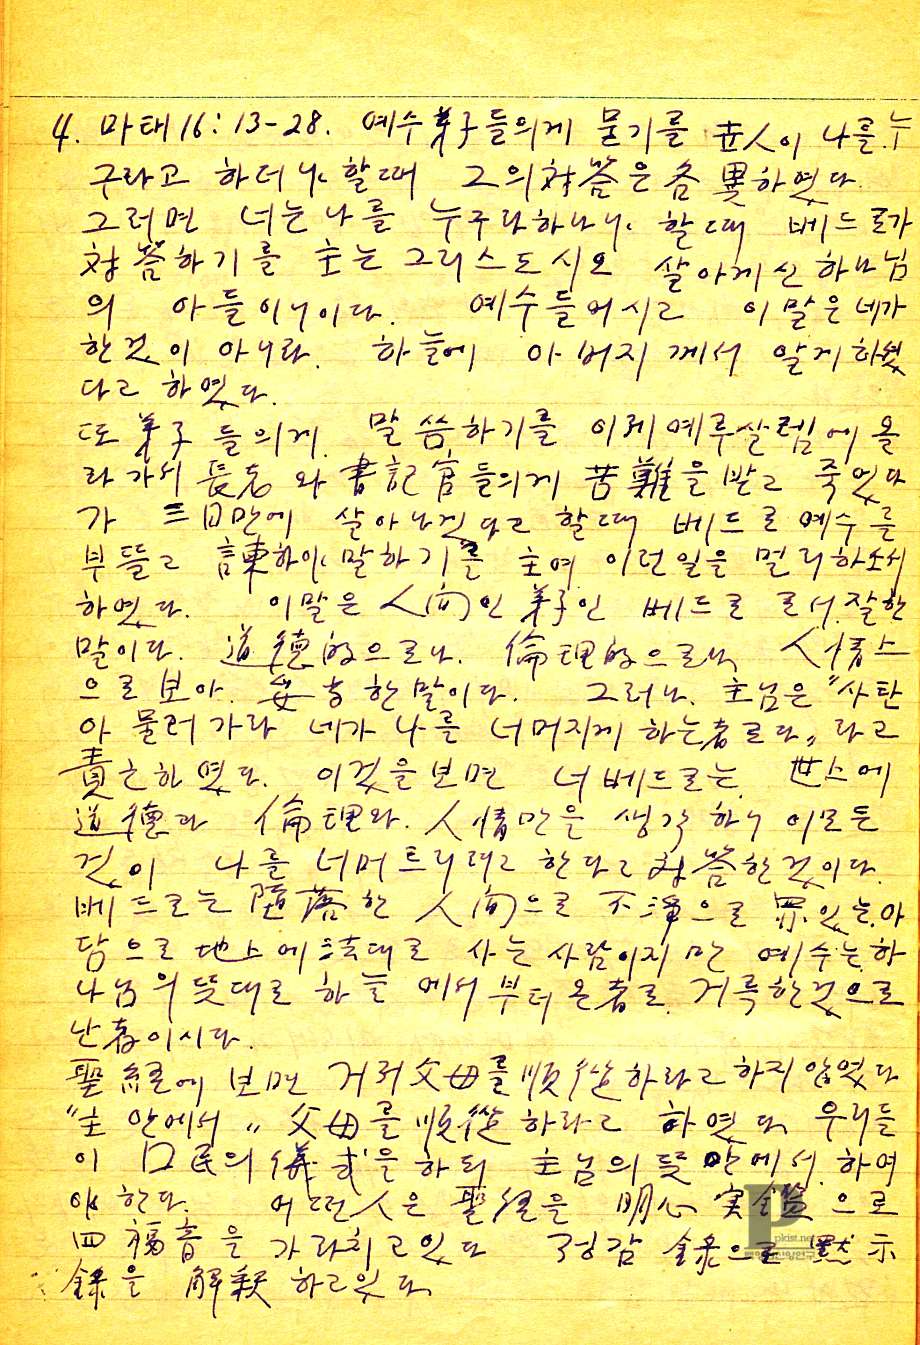 4. 마태 16 : 13-28. 예수 弟子들의게 물기를 世人이 나를 누
구라고 하더냐 할때 그의 対答은 各 異하였다.
그러면 너는 나를 누구라하나냐 할때 베드로가
対答하기를 主는 그리스도시요 살아게신 하나님
의 아들이니이다. 예수들어시고 이 말은 네가
한것이 아니라 하늘에 아버지께서 알게하섰
다고 하였다.
또 弟子들의게 말씀하기를 이제 예루살렘에 올
라가서 長老와 書記官들의게 苦難을 받고 죽었다
가 三日만에 살아나겠다고 할때 베드로 예수를
부뜰고 諫하야 말하기를 主여 이런일을 멀리하소서
하였다. 이말은 人间인 弟子인 베드로 로서 잘한
말이다. 道德的으로나. 倫理的으로나 人情上
으로 보아 妥当한말이다. 그러나 主님은 "사탄
아 물러가라 네가 나를 너머지게 하는者로다" 라고
責하였다. 이것을보면 너 베드로는 世上에
道德과 倫理와. 人情만을 생각하니 이모든
것이 나를 너머트리려고 한다고 対答한것이다.
베드로는 墮落한 人间으로 不淨으로 罪있는 아
담으로 地上에 法대로 사는 사람이지만 예수는 하
나님의 뜻대로 하늘에서부터 온者로 거륵한것으로
난者이시다.
聖経에 보면 거저 父母를 順從하라고 하지 않였다
"主 안에서" 父母를 順從하라고 하였다 우리들
이 口民의 儀式을 하되 主님의 뜻안에서 하여
야 한다. 어떤人은 聖経을 明心宝鑑으로
四福音을 가라치고있다 정감錄으로 黙示
錄을 解釈하고있다
pkist.net